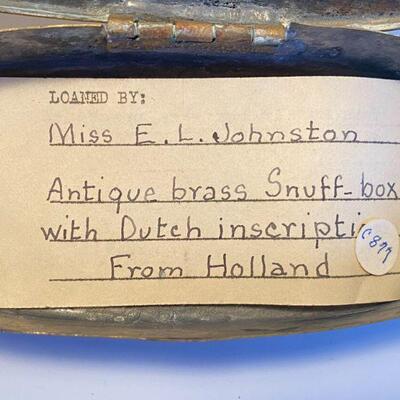 LOANED BY:
Miss E. L. Johnston
Antique brass Snuff-box
with Dutch inscripti
From Holland
C877